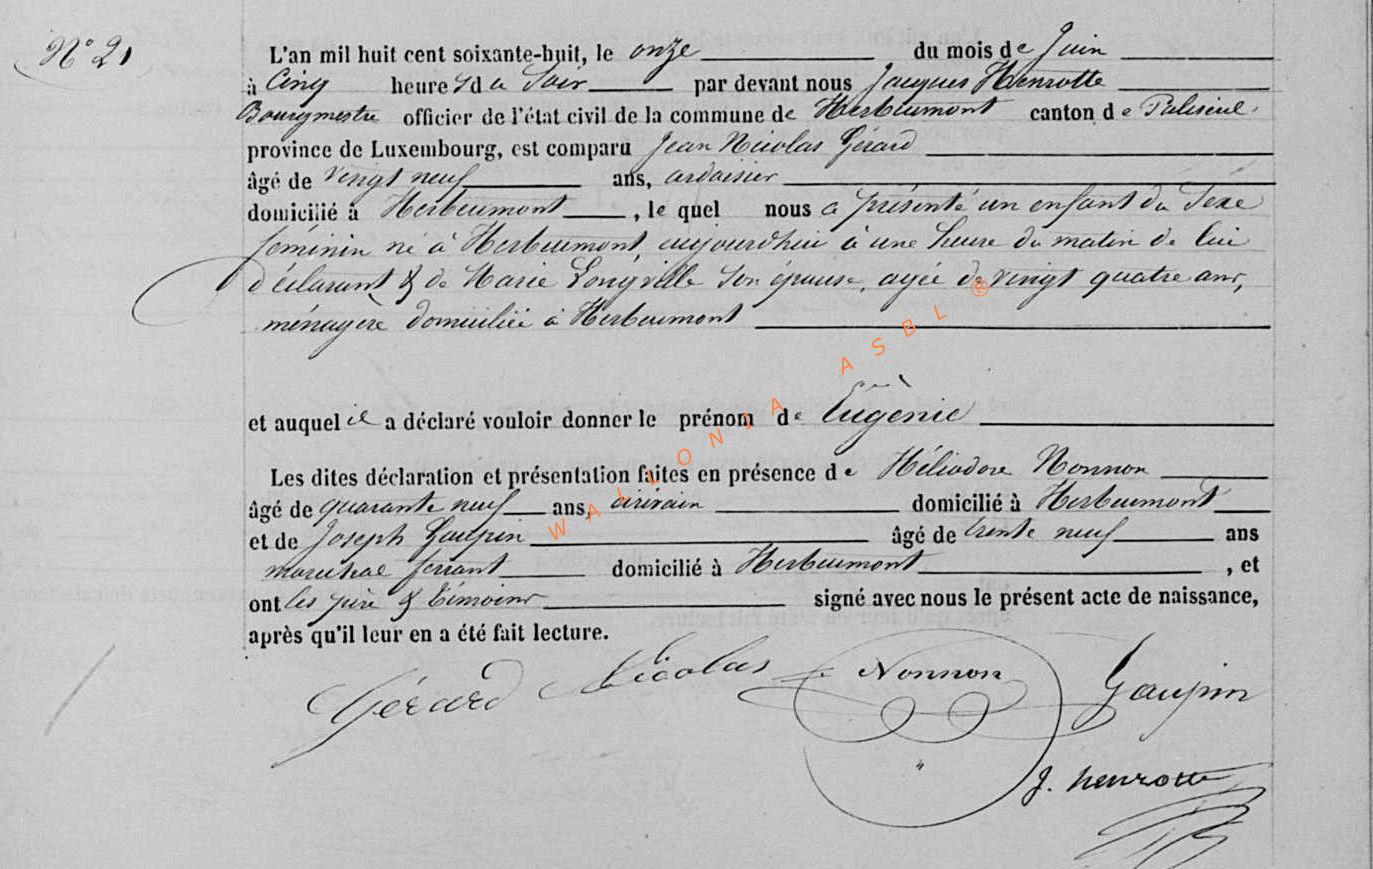 N° 21
L'an mil huit cent soixante-huit, le onze du mois de Juin
à Cinq heures du Soir par devant nous Jacques Henrotte
Bourgmestre officier de l'état civil de la commune de Herbeumont canton de Paliseul
province de Luxembourg, est comparu Jean Nicolas Gérard
âgé de vingt neuf ans, ardoisier
domicilié à Herbeumont, le quel nous a présenté un enfant du Sexe
féminin né à Herbeumont, aujourd'hui à une heure du matin de lui
déclarant & de Marie Longville son épouse, agée de vingt quatre ans,
ménagère domiciliée à Herbeumont
et auquel il a déclaré vouloir donner le prénom de Eugènie
Les dites déclaration et présentation faites en présence de Héliodore Nonnon
âgé de quarante neuf ans, domicilié à Herbeumont
et de Joseph Gaupin âgé de trente neuf ans
marechal ferrant domicilié à Herbeumont, et
ont les père & témoins signé avec nous le présent acte de naissance,
après qu'il leur en a été fait lecture.
Gérard Nicolas Nonnon Gaupin
J. henrotte
WALLONIA ASBL ®